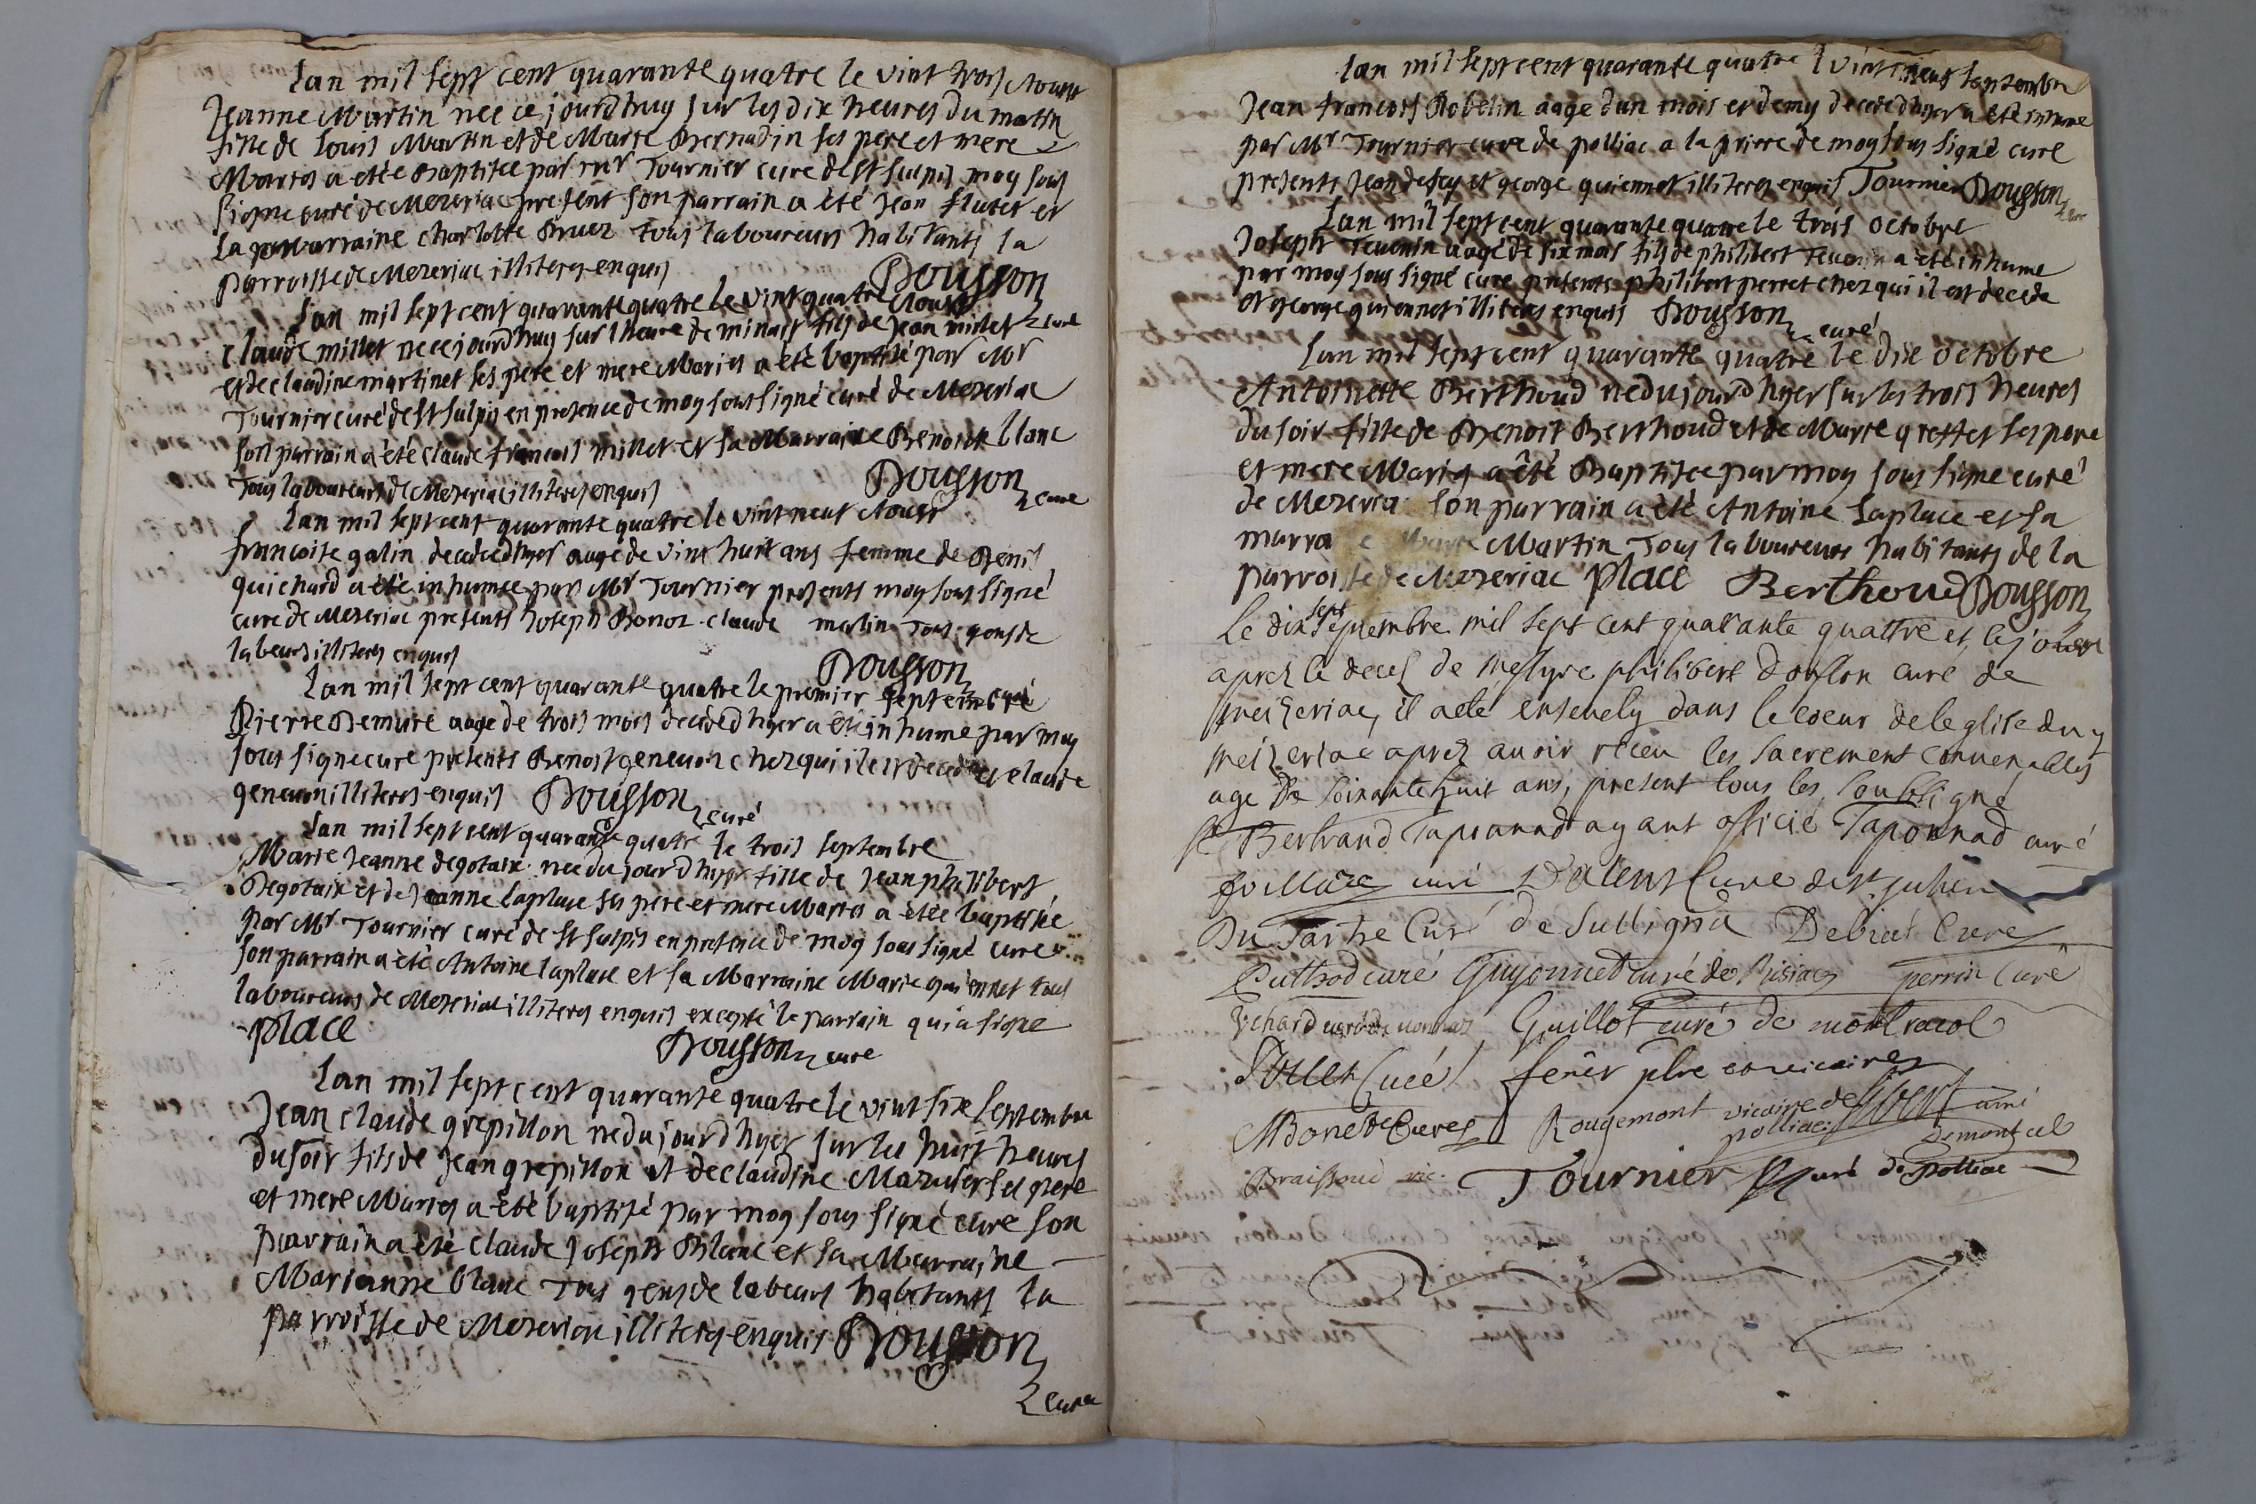 Lan mil sept cent quarante quatre le vint trois Aoust
Jeanne Martin nee ce jourdhuy sur les dix heures du matin
fille de Louis Martin et de Marie Bernadin ses pere et mere
Maries a etée Baptisee par mr Tournier cure de St sulpis moy sous
signe curé de Mezeriac present son parrain a été Jean fluter et
la marraine charlotte Bruez tous laboureurs habitants la
parroisse de Mezeriac illiteres enquis Dousson
curé
Lan mil sept cent quarante quatre le vint quatre Aoust
claude millet ne ce jourdhuy sur lheure de minuit fils de Jean millet
et de claudine martinet ses pere et mere Maries a été baptisé par Mr
Tournier curé de St sulpis en presence de moy sous signé curé de Mezeriac
son parrain a été claude francois millet et sa Marraine Benoite blanc
Tous laboureurs de Mezeriac illiteres enquis Dousson
cure
Lan mil sept cent quarante quatre le vint neuf Aoust
francoise galin decedeed hyer aagé de vint huit ans femme de Benis
quichard a été inhumee par Mr Tournier presents moy sous signé
cure de Mezeriac presents Joseph Bonoz claude merlin Tous gens de
labeurs illiteres enquis Dousson
curé
Lan mil sept cent quarante quatre le premier septembre
Pierre Demure aage de trois mois decedé dhyer a été inhume par moy
sous signe cure presents Benoist geneuoiz chez qui il est decede et claude
geneuoiz illiteres enquis Dousson curé
Lan mil sept cent quarante quatre le trois septembre
Marie Jeanne degotaix nee du jourdhyer fille de Jean philibert
Degotaix et de Jeanne laplace ses pere et mere Maries a étée baptisée
par Mr Tournier curé de St sulpis en presence de moy sous signé cure
son parrain a été Antoine laplace et sa Marraine Marie quiennet tous
laboureurs de Mezeriac illiteres enquis excepté le parrain qui a signe
place
Dousson cure
Lan mil sept cent quarante quatre le vint six septembre
Jean claude grepillon ne du jourd hyer sur les huit heures
du soir fils de Jean grepillon et de claudine Mazuier ses pere
et mere Maries a été baptisé par moy sous signé cure son
parrain a été claude Joseph Blanc et sa Marraine
Marianne blanc Tous gens de labeurs habitants la
parroisse de Mezeriac illiteres enquis Dousson
cure
Lan mil sept cent quarante quatre l vint neuf septembre
Jean francois Robelin aage dun mois et demy decedé dhyer a été inhume
par Mr Tournier cure de polliac a la priere de moy sous signé curé
presents Jean defay et george quiennet illiteres enquis Tournier Dousson
cure
Lan mil sept cent quarante quatre le trois octobre
Joseph Teuenin aagé de six mois fils de philibert Teuenin a été inhume
par moy sous signé cure presents philibert perret chez qui il est decede
et george quiennet illiteres enquis Dousson curé
Lan mil sept cent quarante quatre le dix octobre
Antoinette Berthoud ne du jourd hyer sur les trois heures
du soir fille de Benoit Berthoud et de Marie greffet ses pere
et mere Maries a été Baptisee par moy sous signe curé
de Mezeria son parrain a été Antoine Laplace et sa
marra e Marie Martin Tous laboureurs habitants de la
parroisse de Mezeriac place Berthoud Dousson
Le dix sept septembre mil sept cent quarante quattre et le jour
apres le deces de messyre philibert Dousson curé de
meizeriac, il a été enseuely dans le coeur de leglise du
meizeriac apres auoir receu les sacrement conuenables
age de soixante huit ans, present tous les soubsigné
Sr Bertrand Taponnad ayant officié Taponnad curé
curé Dalens Cure de st julien
Du Tartre Curé de Sulligna Debiat Cure
Puthod curé Guyonnet curé de Perrin Curé
curé de uonnas Guillot curé de montracol
Curé ferer ptre et uicaire
Curé Rougemont vicaire de curé
polliac Demontcel
Braissoud vic. Tournier curé de polliac